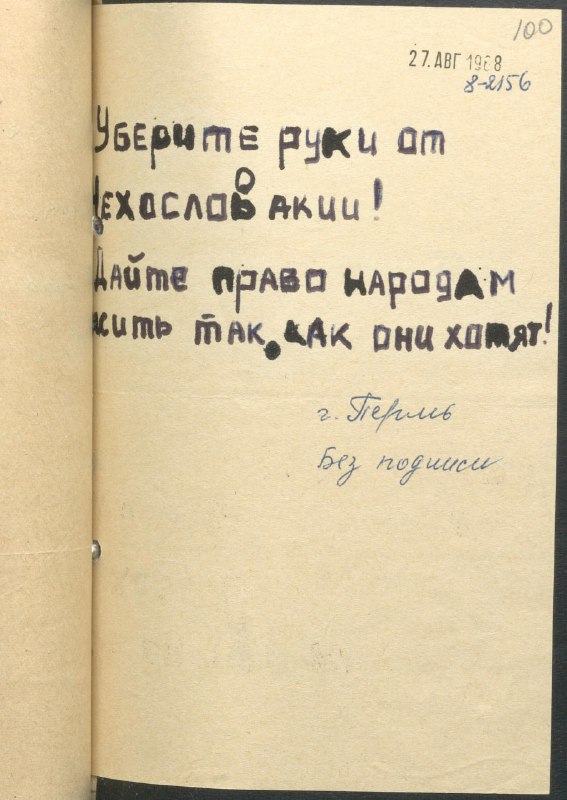 100
27. АВГ 1968
8-2156
Уберите руки от
Чехословакии!
Дайте право народам
жить так, как они хотят!
г. Пермь
Без подписи